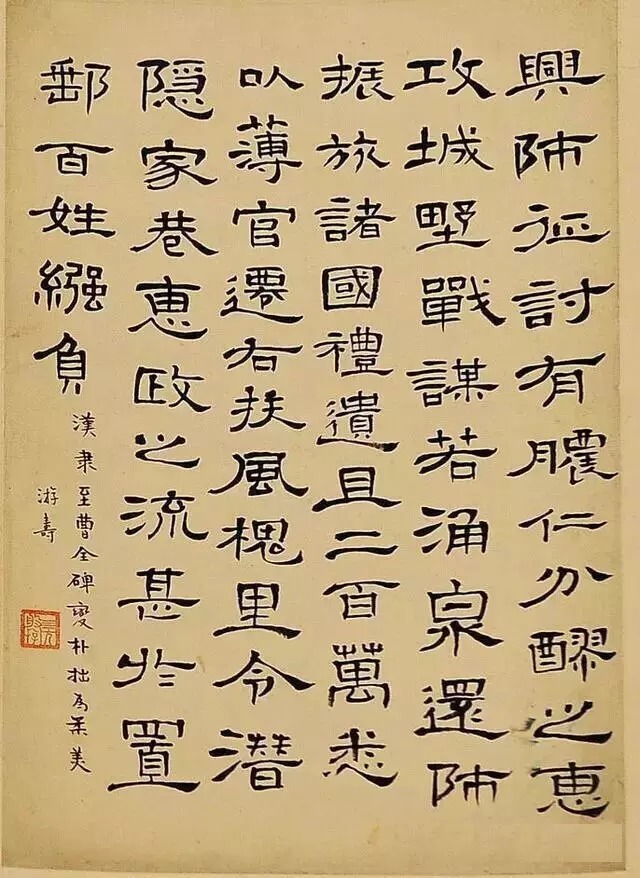 興師征討有膿仁分醪之惠
攻城野戰謀若涌泉還師
振旅諸國禮遺且二百萬悉
以薄官遷右扶風槐里令潛
隱家巷惠政之流甚於置
郵百姓繦負
漢隸至曹全碑變朴拙為柔美
游壽